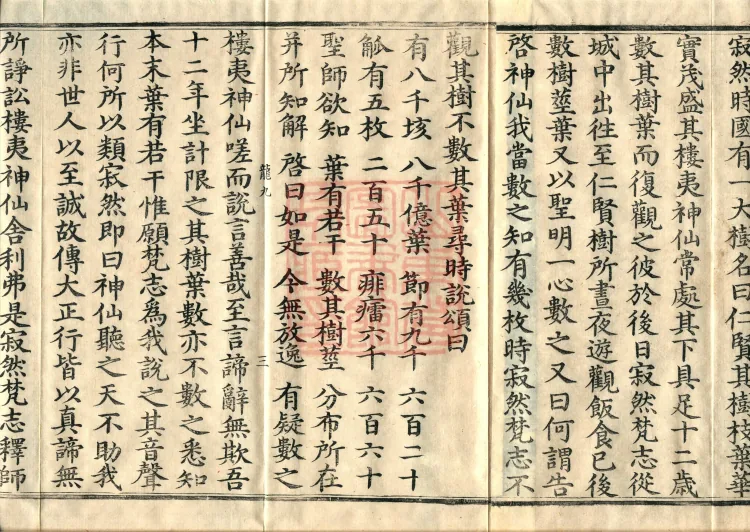 寂然時國有一大樹名曰仁賢其樹枝葉華
實茂盛其樓夷神仙常處其下具足十二歳
數其樹葉而復觀之彼於後日寂然梵志從
城中出往至仁賢樹所晝夜遊觀飯食已後
數樹莖葉又以聖明一心數之又曰何謂告
啓神仙我當數之知有幾枚時寂然梵志不
觀其樹不數其葉尋時說頌曰
有八千垓 八千億葉 節有九千 六百二十
觚有五枚 二百五十 痱癗六千 六百六十
聖師欲知 葉有若干 數其樹莖 分布所在
并所知解 啓曰如是 今無放逸 有疑數之
龍九 三
樓夷神仙嗟而說言善哉至言諦辭無欺吾
十二年坐計限之其樹葉數亦不數之悉知
本末葉有若干惟願梵志爲我說之其音聲
行何所以類寂然即曰神仙聽之天不助我
亦非世人以至誠故傳大正行皆以真諦無
所諍訟樓夷神仙舍利弗是寂然梵志釋師